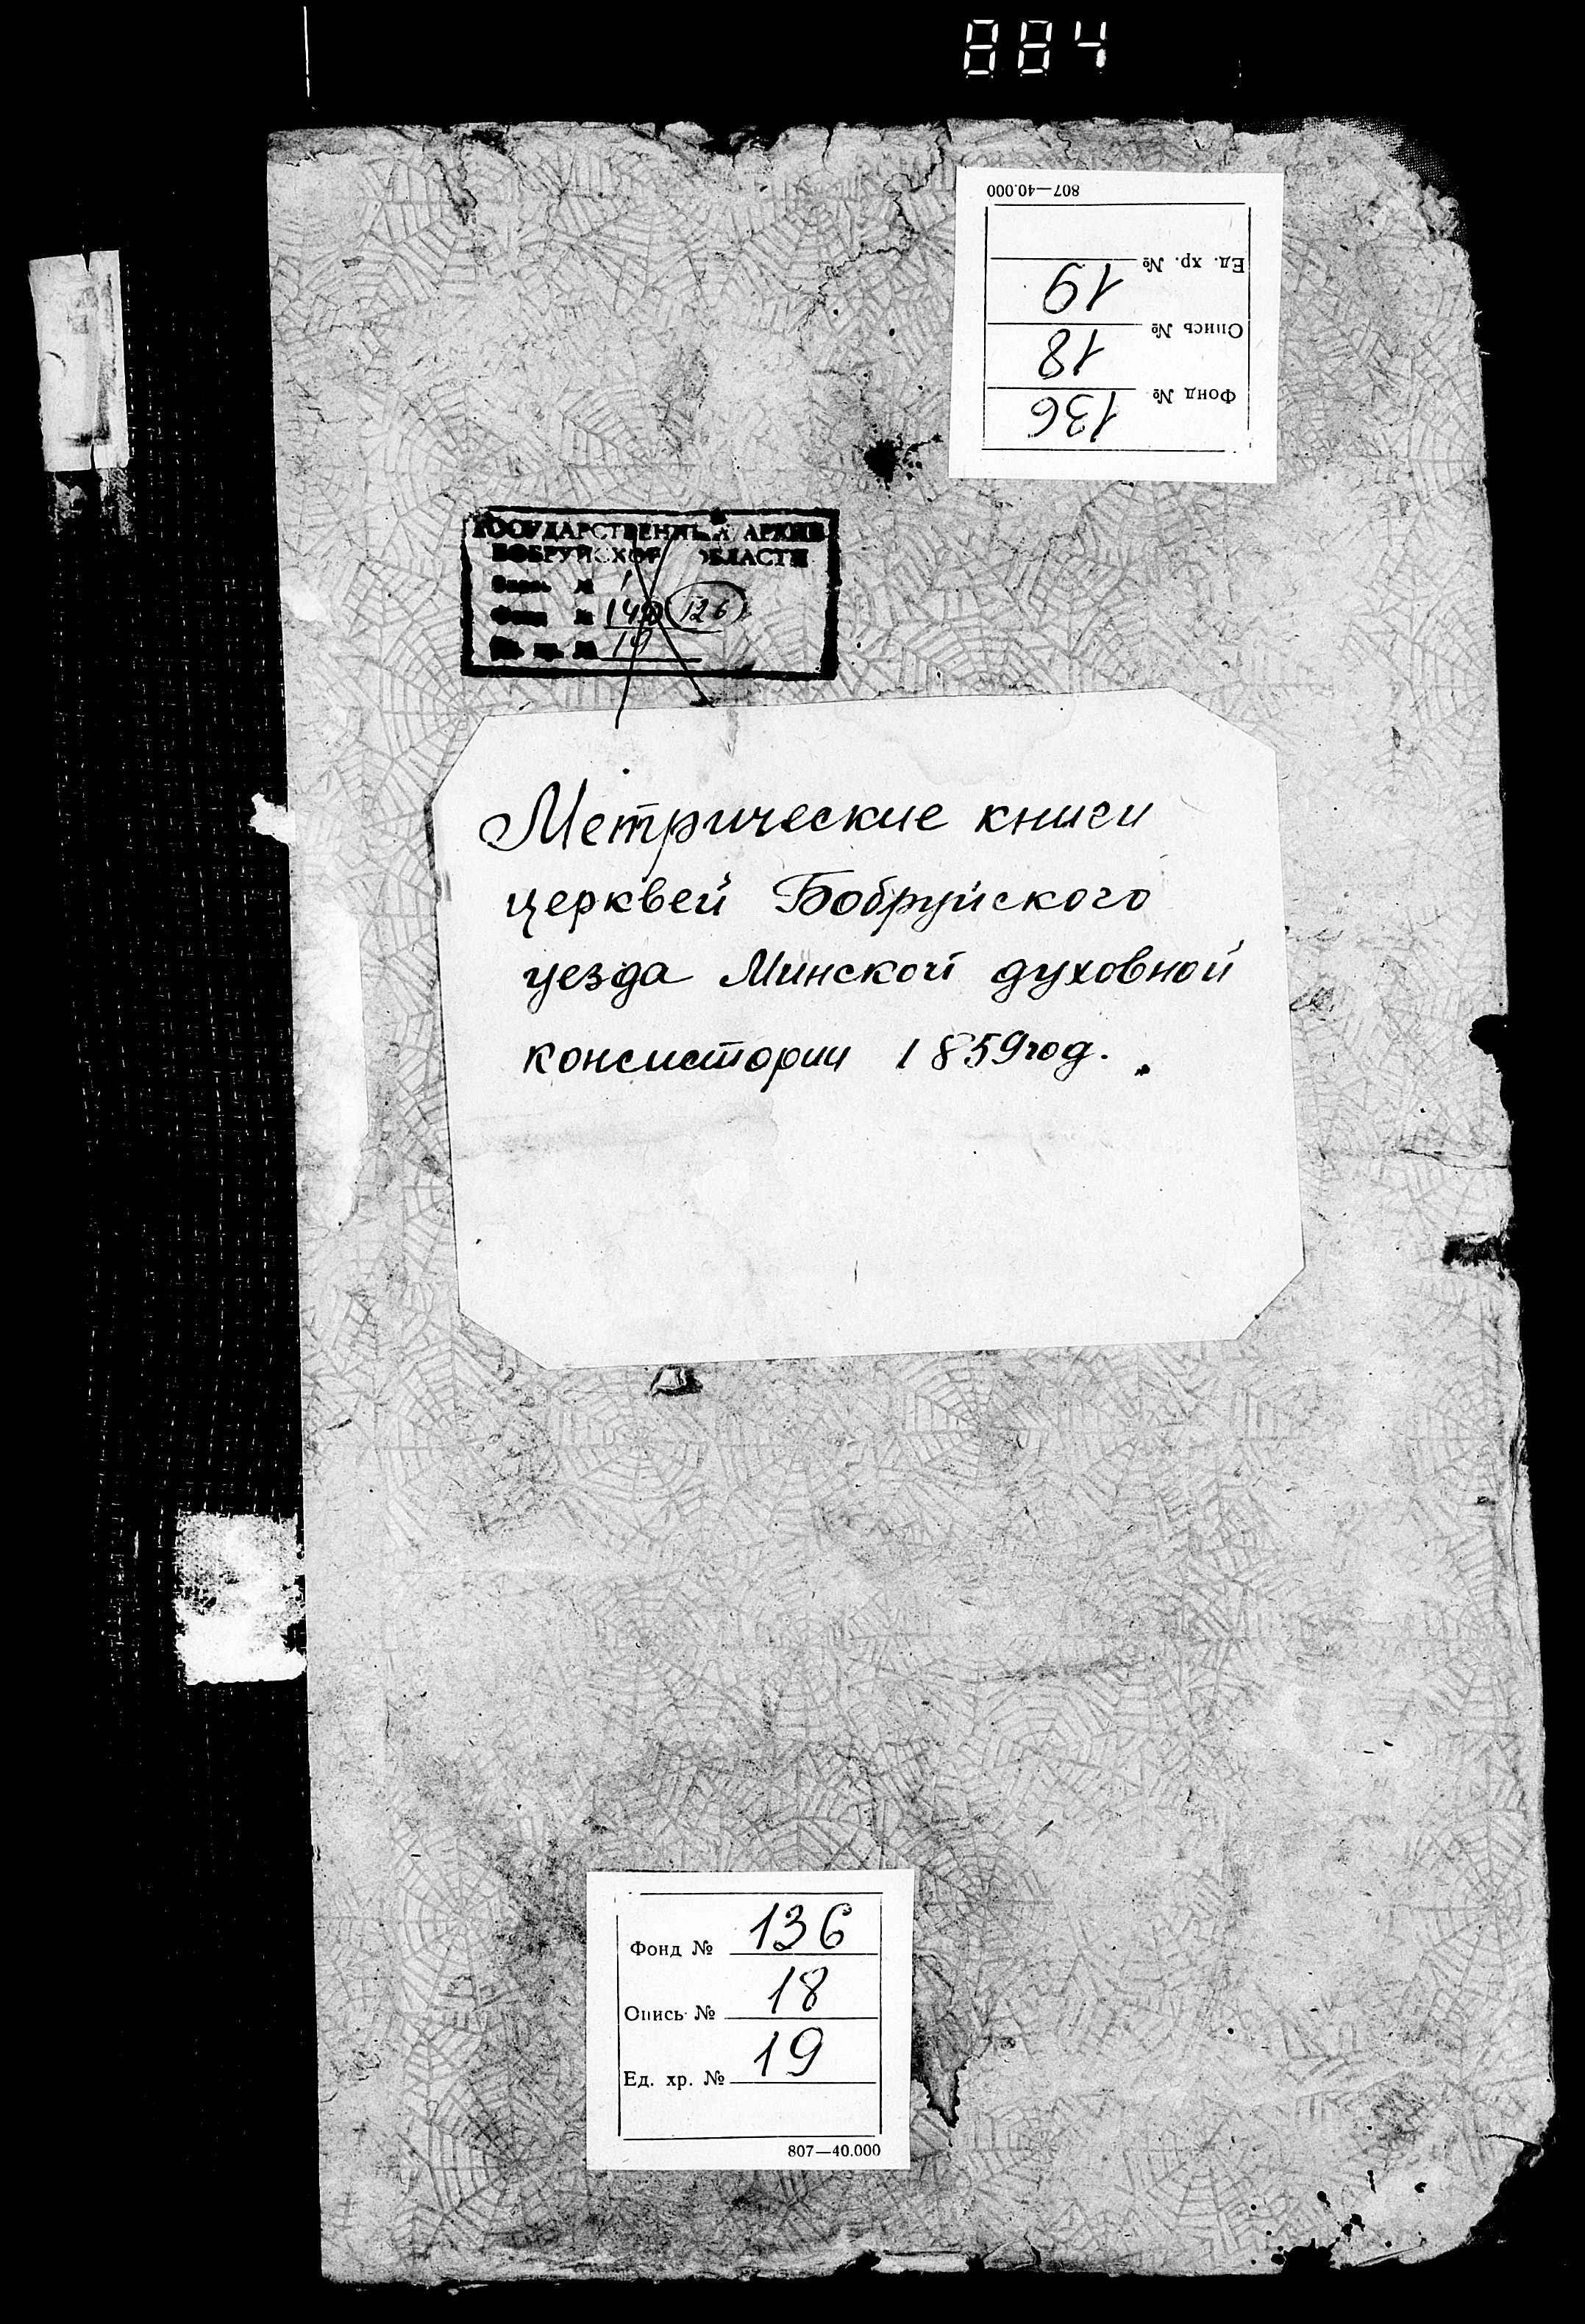 884
807—40.000
Ед. хр. № 19
Опись № 18
Фонд № 136
ГОСУДАРСТВЕННЫЙ АРХИВ
БОБРУЙСКОЙ ОБЛАСТИ
126
Метрические книги
церквей Бобруйского
уезда Минской духовной
консистории 1859 год.
Фонд № 136
Опись № 18
Ед. хр. № 19
807—40.000